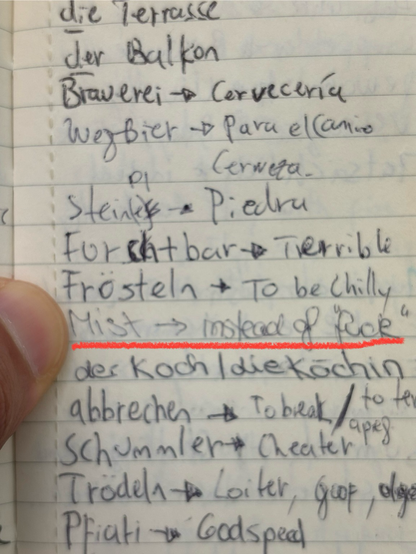 die Terrasse
der Balkon
Brauerei → Cervecería
Wegbier → Para el Camino
Cerveza.
Pl
Stein → Piedra
Furchtbar → Terrible
Frösteln → To be chilly
Mist → instead of "fuck"
der Koch/die Köchin
abbrechen → To break / to
Schummler → Cheater
Trödeln → Loiter, goof,
Pfiati → Godspeed